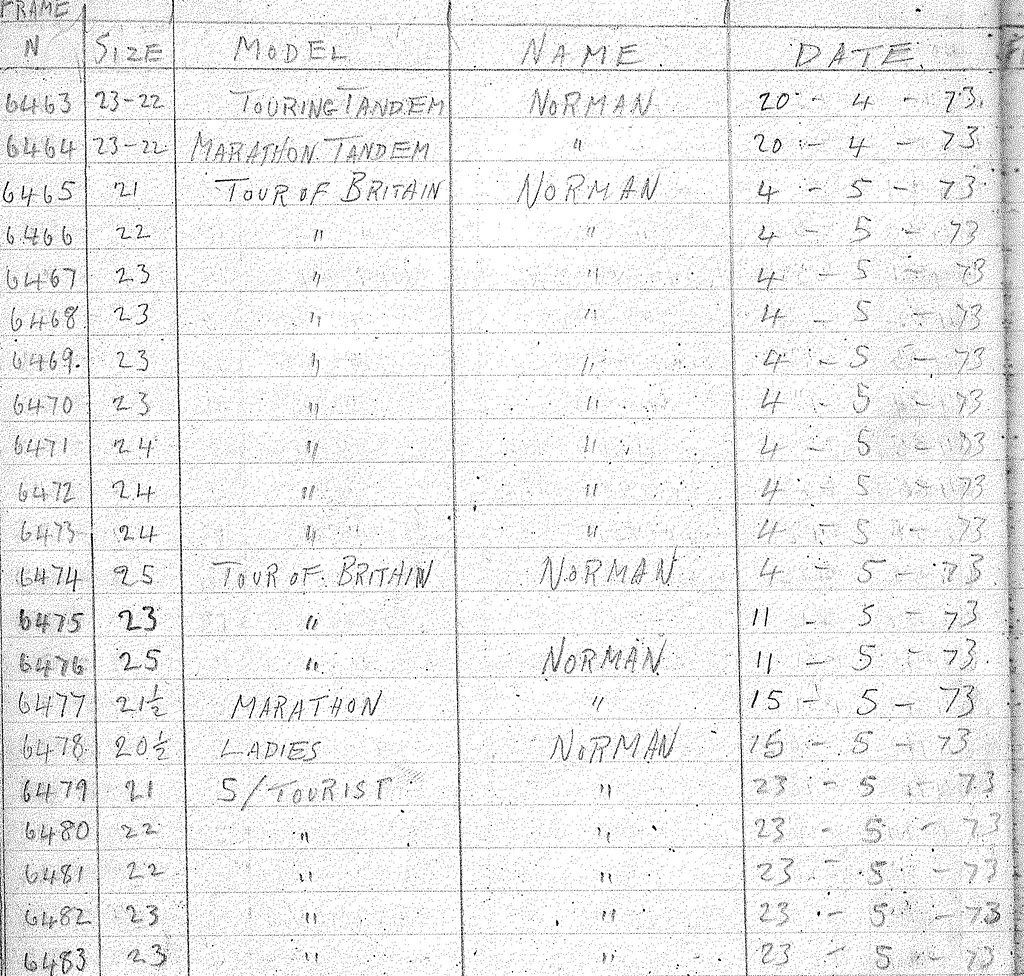 FRAME
N SIZE MODEL NAME DATE
6463 23-22 TOURING TANDEM NORMAN 20 - 4 - 73
6464 23-22 MARATHON TANDEM " 20 - 4 - 73
6465 21 TOUR OF BRITAIN NORMAN 4 - 5 - 73
6466 22 " " 4 - 5 - 73
6467 23 " " 4 - 5 - 73
6468 23 " " 4 - 5 - 73
6469. 23 " " 4 - 5 - 73
6470 23 " " 4 - 5 - 73
6471 24 " " 4 - 5 - 73
6472 24 " " 4 - 5 - 73
6473 24 " " 4 - 5 - 73
6474 25 TOUR OF BRITAIN NORMAN 4 - 5 - 73
6475 23 " 11 - 5 - 73
6476 25 " NORMAN 11 - 5 - 73
6477 21½ MARATHON " 15 - 5 - 73
6478 20½ LADIES NORMAN 15 - 5 - 73
6479 21 S/TOURIST " 23 - 5 - 73
6480 22 " " 23 - 5 - 73
6481 22 " " 23 - 5 - 73
6482 23 " " 23 - 5 - 73
6483 23 " " 23 - 5 - 73